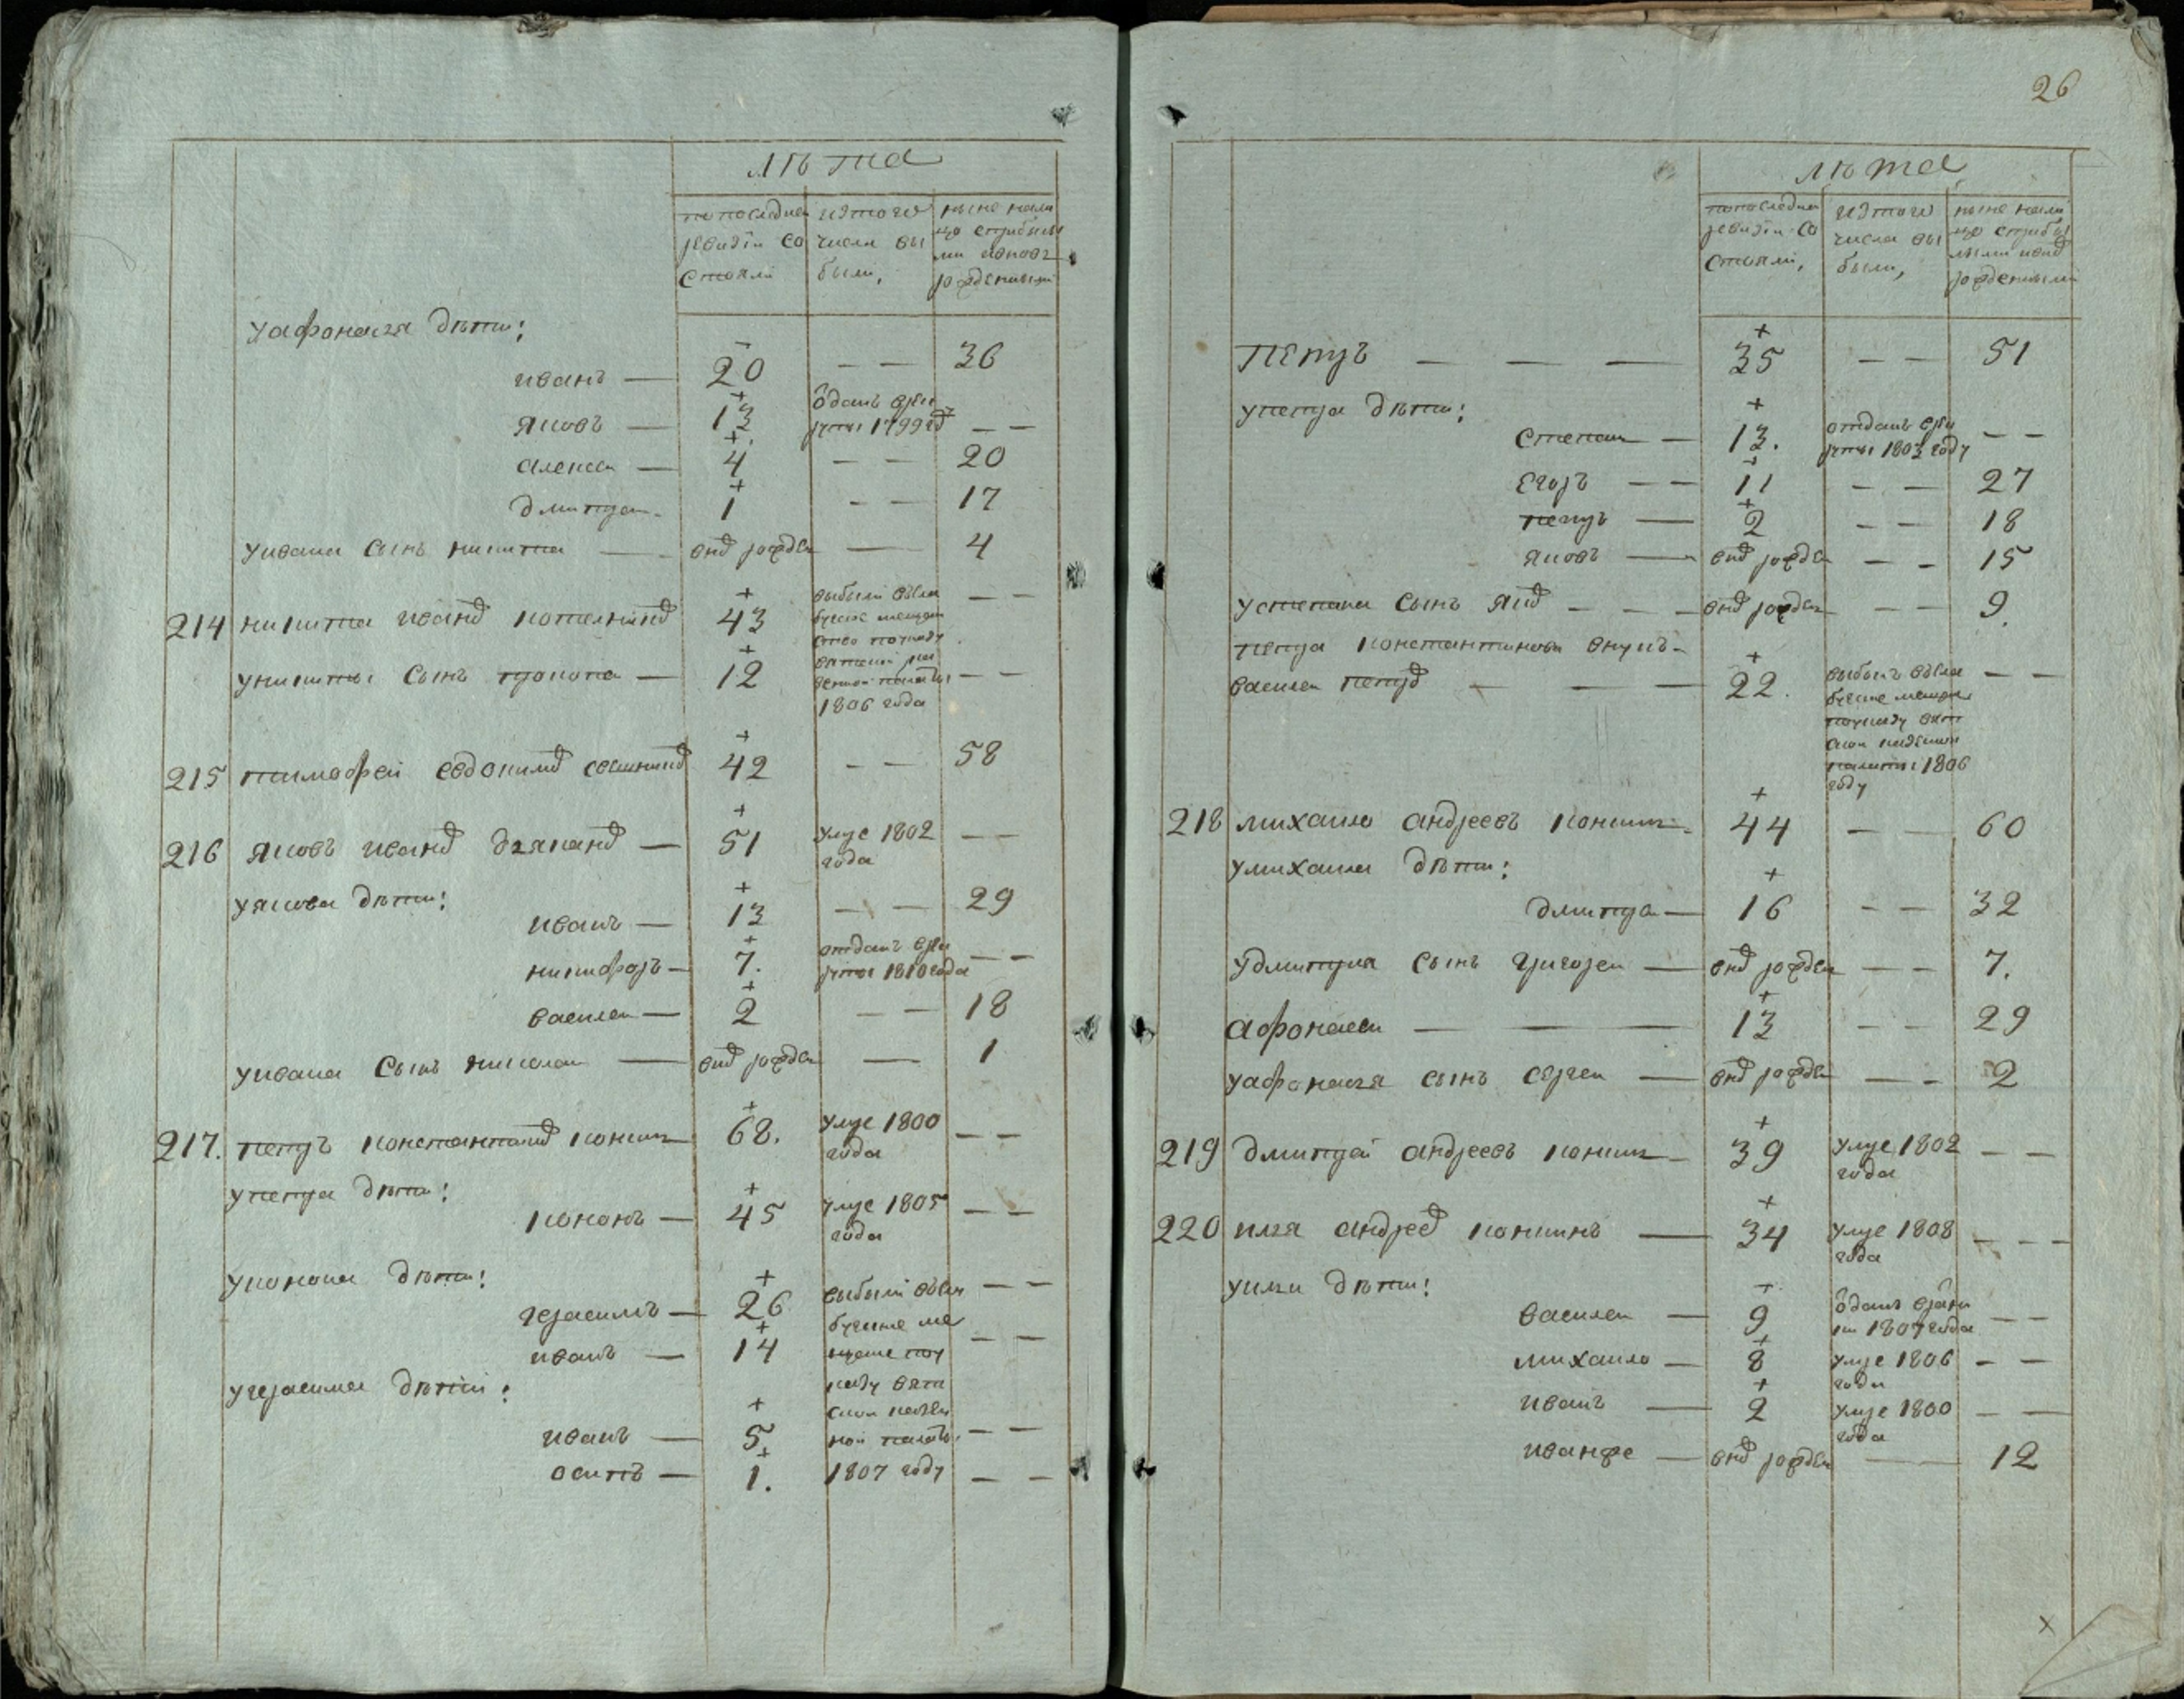 лѣта
по последней ревизiи состояли
изтого числа выбыли,
ныне налицо сприбылыми ивновь рожденными
уафонасья дѣти:
иванъ — 20 — — 36
яковъ — 13 ѿданъ врекруты 1799 год — —
алексей — 4 — — 20
дмитрей — 1 — — 17
уивана сынъ никита — внов рожден — 4
214 никита иванов котелников 43 выбыли вѣла
буское мещан
ство поуказу
вятской ка
зенной палаты
1806 года — —
уникиты сынъ прокопей — 12 — —
215 тимофей евдокимов 42 — — 58
216 яковъ иванов — 51 умре 1802 года — —
уякова дѣти:
иванъ — 13 — — 29
никифоръ — 7. отданъ врекруты 1810 года — —
василей — 2 — — 18
уивана сынъ николай — внов рожден — 1
217. петръ константинов коншин — 68. умре 1800 года — —
упетра дѣти:
кононъ — 45 умре 1805 года — —
уконона дѣти:
герасимъ — 26 выбыли вѣла
буские ме
щане поу
казу вят
ской казен
ной палаты
1807 году — —
иванъ — 14 — —
угерасима дѣтей:
иванъ — 5 — —
осипъ — 1. — —
26
лѣта
по последней ревизiи состояли,
изтого числа выбыли,
ныне налицо сприбылыми ивнов рожденными
Петръ — — — 35 — — 51
упетра дѣти:
степанъ — 13. отданъ врекруты 1803 году — —
егоръ — — 11 — — 27
петръ — 2 — — 18
яковъ — внов рожден — — 15
устепана сынъ яков — — — внов рожден — — 9.
петра константинова внукъ
василей петров — — — 22. выбылъ вѣла
буские мещане
поуказу вят
ской казенной
палаты 1806
году — —
218 михаило андреевъ коншин — 44 — — 60
умихаила дѣти:
дмитрей — 16 — — 32
удмитрия сынъ григорей — внов рожден — — 7.
афонасей — — 13 — — 29
уафонасья сынъ сергей — внов рожден — — 2
219 дмитрей андреевъ коншин — 39 умре 1802 года — —
220 илья андреев коншинъ — 34 умре 1808 года — — —
уильи дѣти:
василей — 9 ѿданъ врекруты 1807 года — —
михаило — 8 умре 1806 года — —
иванъ — 2 умре 1800 года — —
иванже — внов рожден — 12